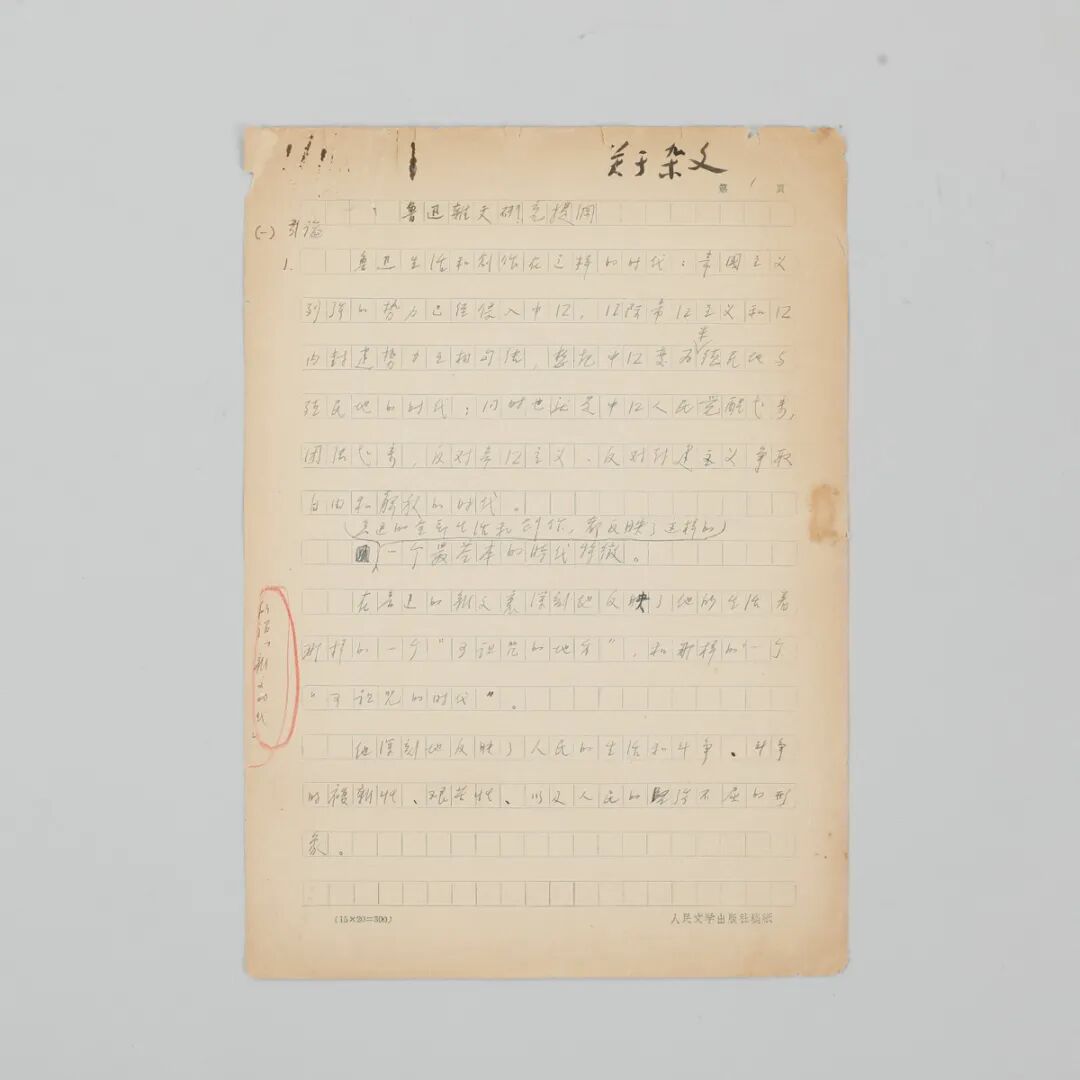 关于杂文
第 1 页
鲁迅雜文研究提纲
(一) 引论
1. 鲁迅生活和创作在这样的时代：帝国主义
列强的势力已经侵入中囗，囗际帝囗主义和囗
内封建势力互相勾结，想把中囗变为半殖民地与
殖民地的时代；同时也就是中囗人民觉醒起来，
团结起来，反对帝囗主义、反对封建主义争取
自由和解放的时代。
鲁迅的全部生活和创作，都反映了这样的
一个最基本的时代特徵。
在鲁迅的雜文裏深刻地反映了他的生活着
那样的一个“可詛咒的地方”，和那样的一个
“可詛咒的时代”。
他深刻地反映了人民的生活和斗争、斗争
的複雜性、艰苦性、以及人民的坚强不屈的形
象。
(15×20=300)
人民文学出版社稿纸